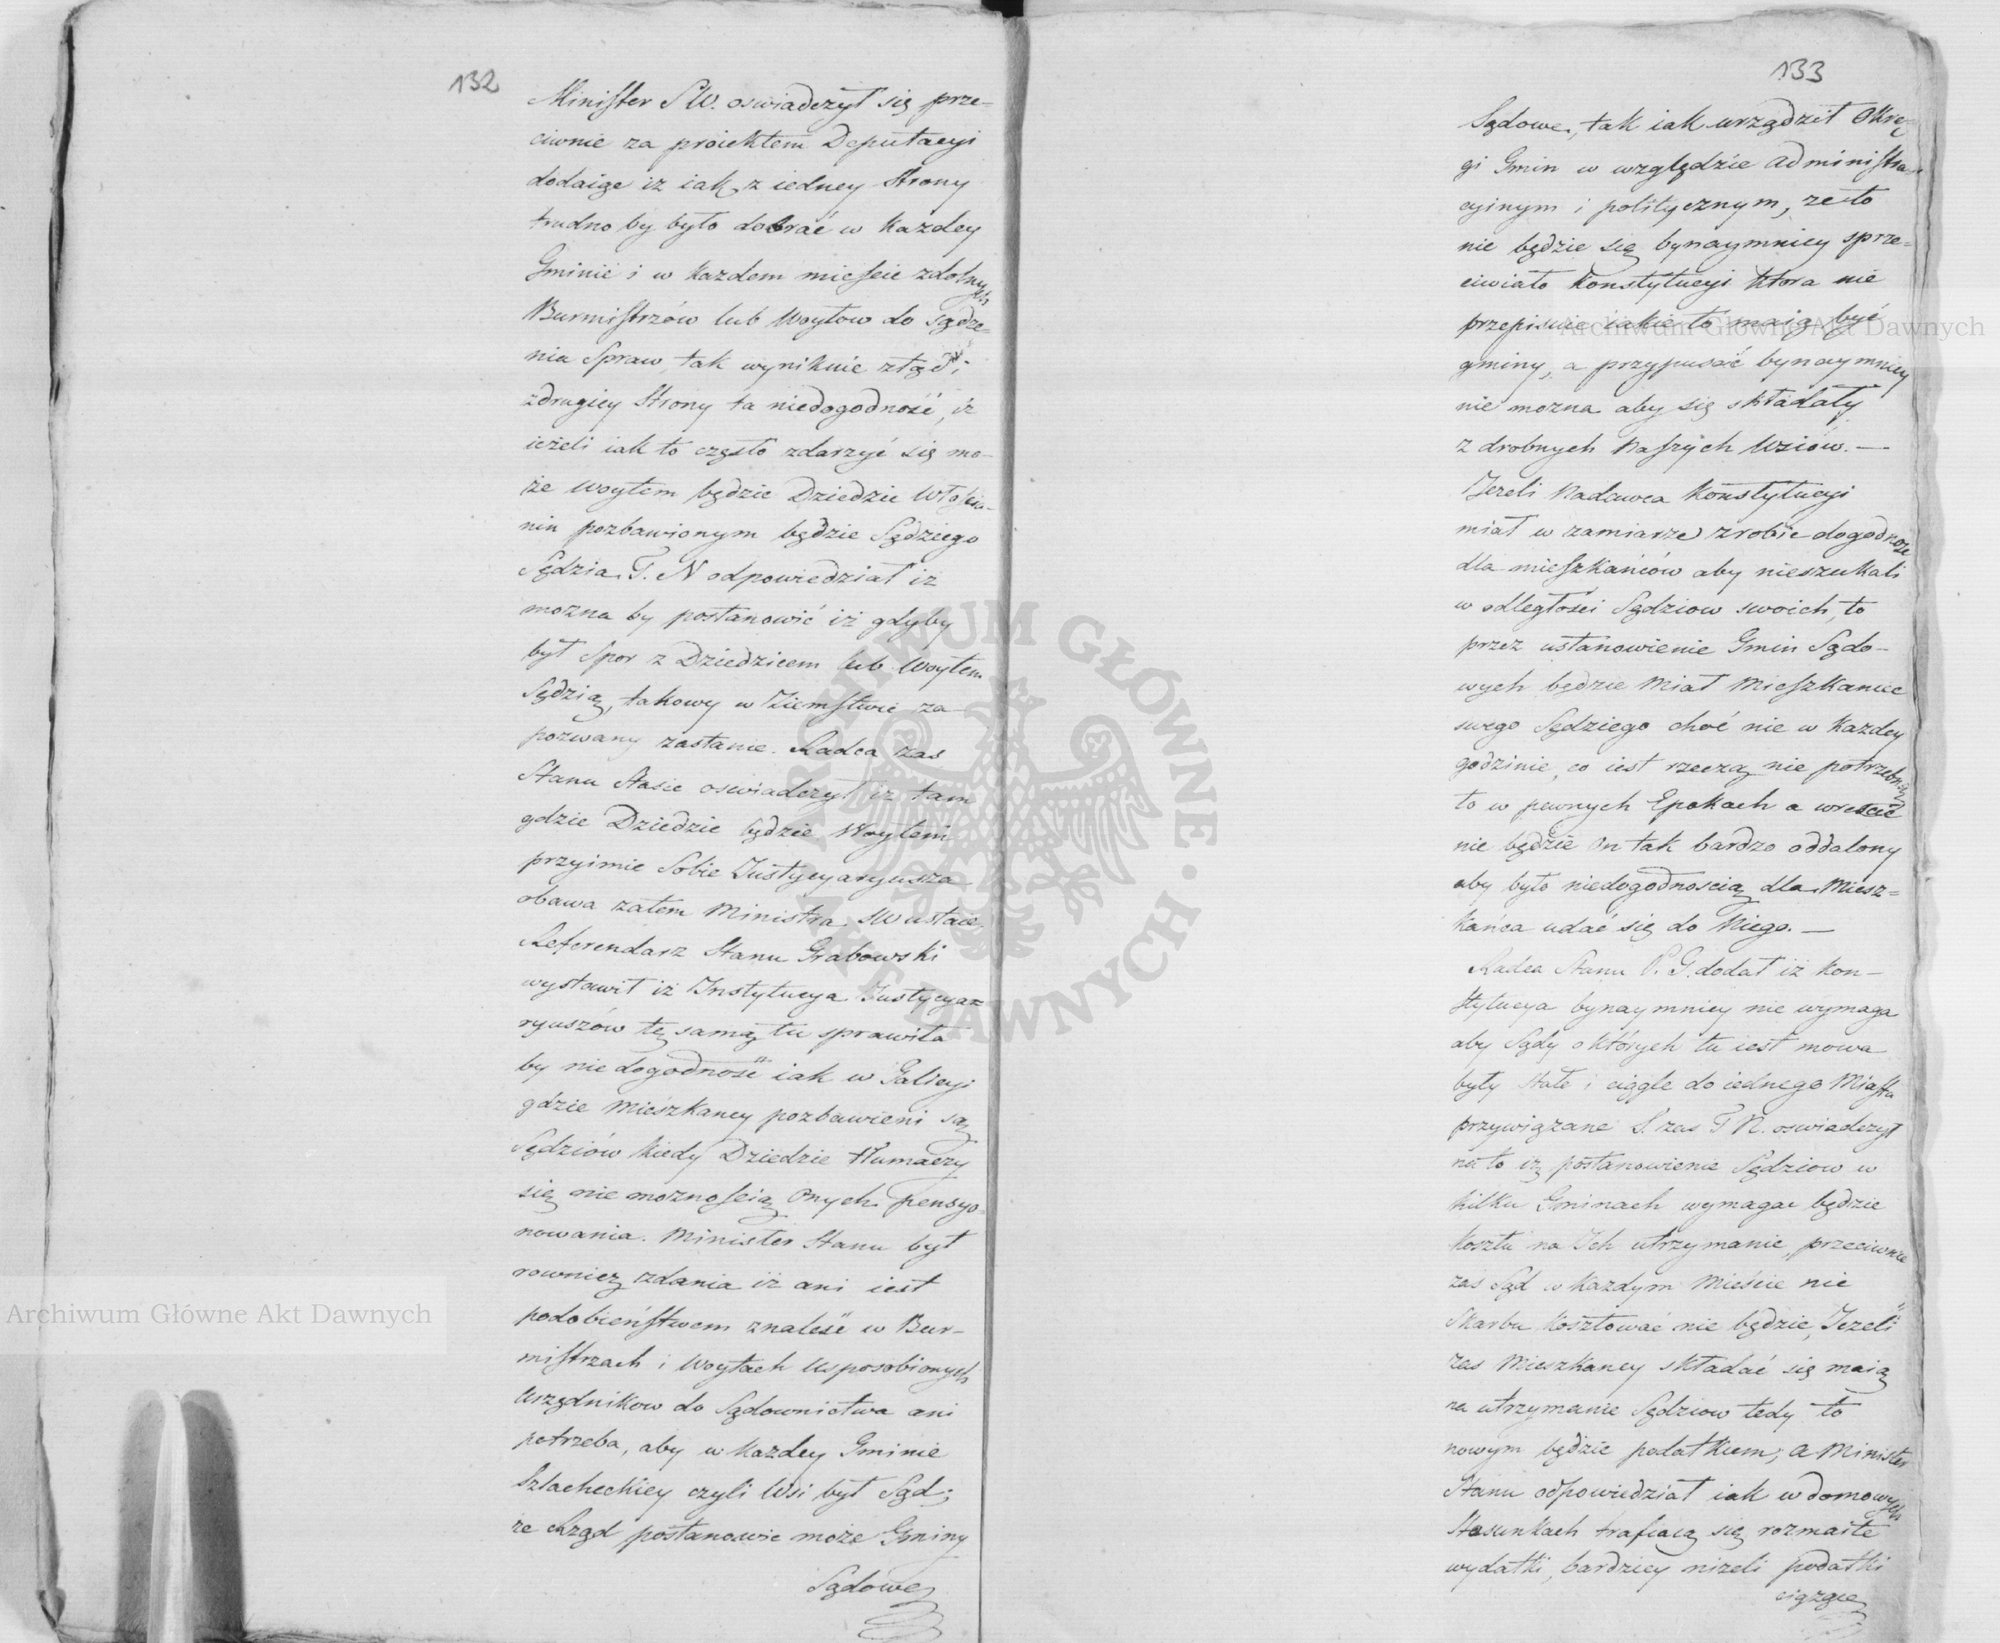 132
Minister SW. oswiadczył się prze-
ciwnie za proiektem Deputacyi
dodaiąc iż iak z iedney strony
trudno by było dobrać w każdey
Gminie i w każdem mieście zdolnych
Burmistrzów lub Woytow do sądze-
nia Spraw, tak wyniknie ztąd i
zdrugiey Strony ta niedogodność, iż
ieżeli iak to często zdarzyć się mo-
że woytem będzie Dziedzic Włościa-
nin pozbawionym będzie Sędziego
Sędzia T. N odpowiedział iz
mozna by postanowić iż gdyby
był Spor z Dziedzicem lub Woytem
Sędzią, takowy w Ziemstwie za
pozwany zostanie. Radca zas
Stanu Stasic oswiadczył iż tam
gdzie Dziedzic będzie Woytem
przyimie Sobie Justycyaryusza
obawa zatem Ministra SW ustaie,
Referendarz Stanu Grabowski
wystawił iż Instytucya Justycya-
ryuszów tę samą tu sprawiła
by niedogodność iak w Galicyi
gdzie Mieszkancy pozbawieni są
Sędziów kiedy Dziedzic tłumaczy
się nie możnością Onych pensyo-
nowania. Minister Stanu był
rownież zdania iż ani iest
podobieństwem znaleść w Bur-
mistrzach i Woytach usposobionych
Urzędnikow do Sądownictwa ani
potrzeba, aby w każdey Gminie
Szlacheckiey czyli Wsi był Sąd;
ze Rząd postanowić może Gminy
Sądowe
133
Sądowe, tak iak urządził Okrę-
gi Gmin w względzie administra-
cyinym i politycznym, ze to
nie będzie się bynaymniey sprze-
ciwiało Konstytucyi która nie
przepisuie iakie to maią być
gminy, a przypuść bynaymniey
nie mozna aby się składały
z drobnych naszych Wsiów. —
Jeżeli Nadawca Konstytucyi
miał w zamiarze zrobic dogodnosc
dla mieszkańców aby nieszukali
w odległości Sędziow swoich, to
przez ustanowienie Gmin Sądo-
wych będzie miał Mieszkaniec
swego Sędziego choć nie w każdey
godzinie, co iest rzeczą nie potrzebną
to w pewnych Epokach a wreście
nie będzie On tak bardzo oddalony
aby było niedogodnością dla Miesz-
kańca udać się do Niego. —
Radca Stanu P. G. dodał iż Kon-
stytucya bynaymniey nie wymaga
aby Sądy o których tu iest mowa
były stałe i ciągle do iednego Miasta
przywiązane S. zas T N. oswiadczył
na to iż postanowienie Sędziow w
kilku Gminach wymagac będzie
kosztu na Ich utrzymanie, przeciwnie
zaś Sąd w każdym Mieście nie
Skarbu kosztować nie będzie, Jeżeli
zas Mieszkancy składać się maią
na utrzymanie Sędziow tedy to
nowym będzie podatkiem; a Minister
Stanu odpowiedział iak w domowych
Stosunkach trafiaią się rozmaite
wydatki, bardziey nizeli podatki
ciążące
Archiwum Główne Akt Dawnych
Archiwum Główne Akt Dawnych
ARCHIWUM GŁÓWNE · AKT DAWNYCH ·